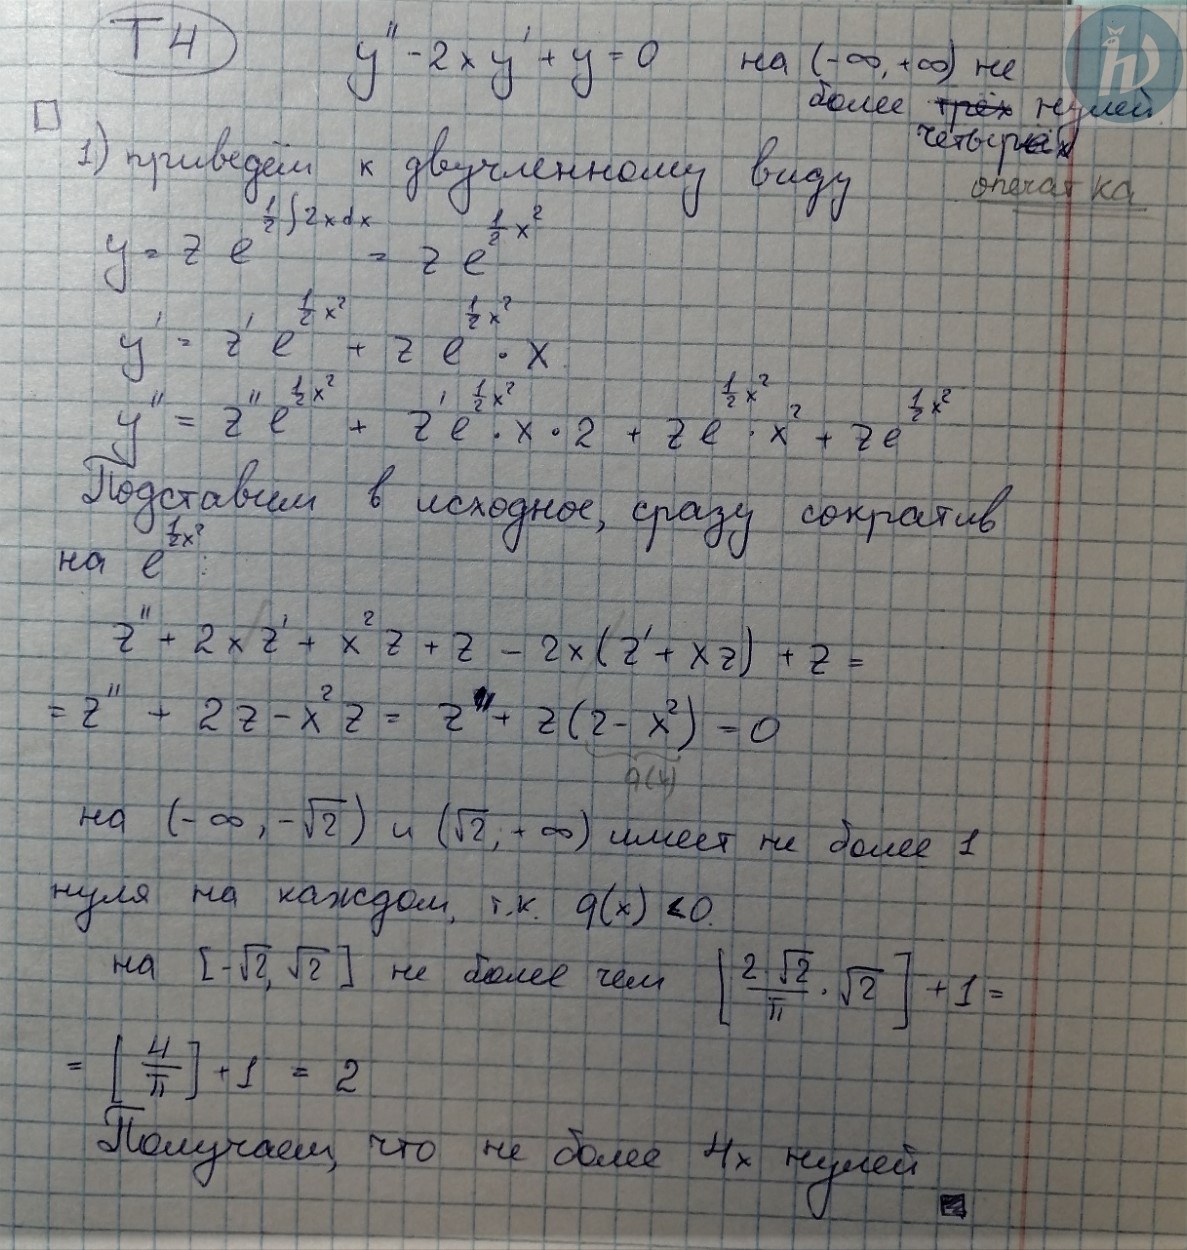 T4
y'' - 2xy' + y = 0 на (-∞, +∞) не
более трёх нулей
четырёх
опечатка
1) приведём к двучленному виду
y = z e^{\frac{1}{2}∫2xdx} = z e^{\frac{1}{2}x^2}
y' = z' e^{\frac{1}{2}x^2} + z e^{\frac{1}{2}x^2} · x
y'' = z'' e^{\frac{1}{2}x^2} + z' e^{\frac{1}{2}x^2} · x · 2 + z e^{\frac{1}{2}x^2} · x^2 + z e^{\frac{1}{2}x^2}
Подставим в исходное, сразу сократив
на e^{\frac{1}{2}x^2}:
z'' + 2xz' + x^2 z + z - 2x(z' + xz) + z =
= z'' + 2z - x^2 z = z'' + z(2 - x^2) = 0
q(x)
на (-∞, -√2) и (√2, +∞) имеет не более 1
нуля на каждом, т.к. q(x) < 0.
на [-√2, √2] не более чем [\frac{2√2}{π} · √2] + 1 =
= [\frac{4}{π}] + 1 = 2
Получаем, что не более 4х нулей